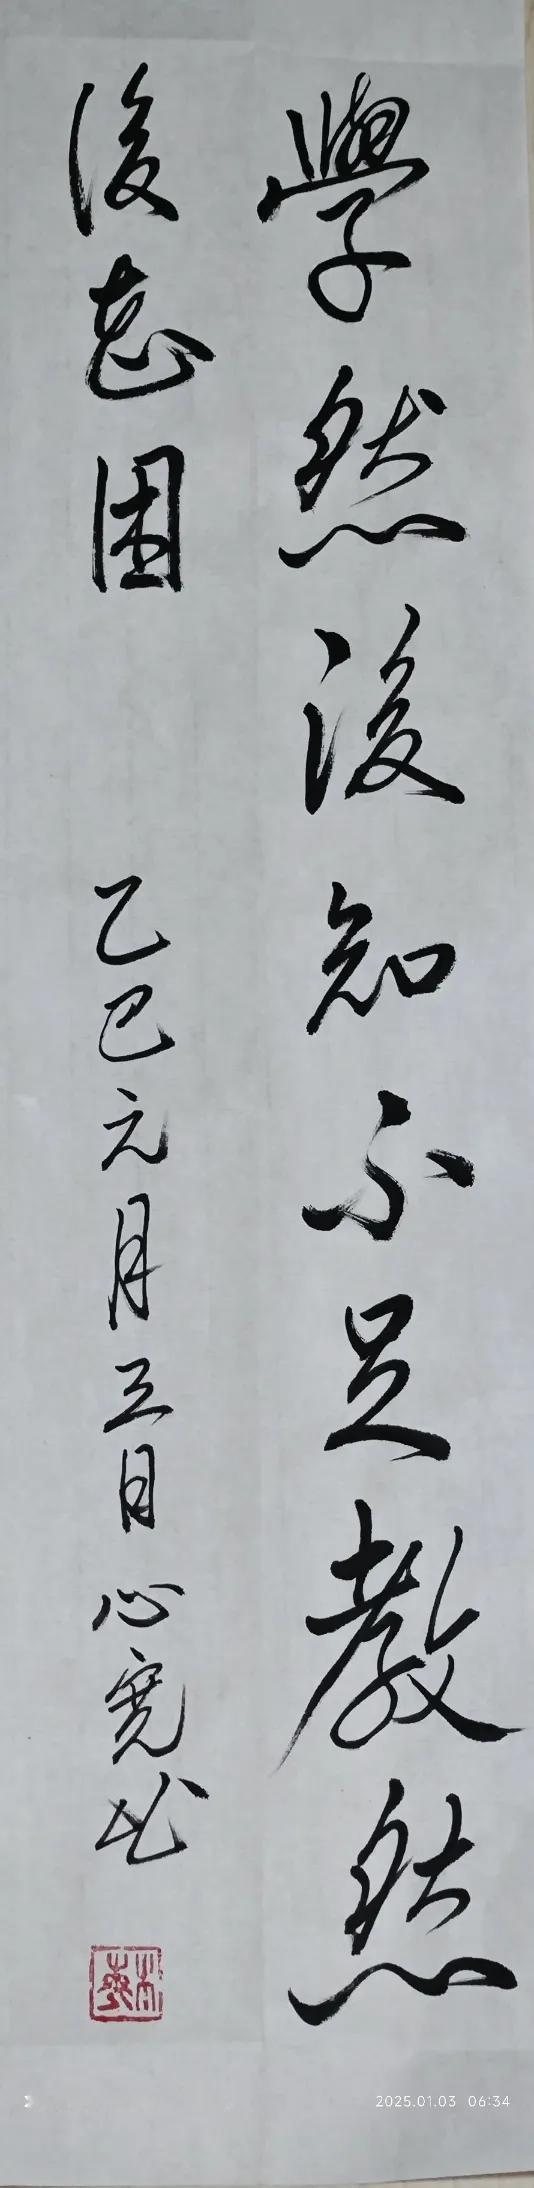 學然後知不足教然
後志困
乙巳元月三日心寬书
2025.01.03 06:34